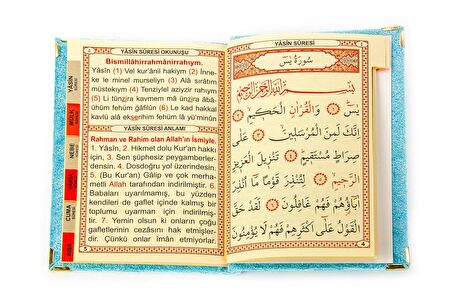 YÂSİN SÛRESİ OKUNUŞU
Bismillâhirrahmânirrahıym.
Yâsîn (1) Vel kur'ânil hakiym (2) İnne-
ke le minel murseliyn (3) Alâ sırâtım
müstekıym (4) Tenziylel aziyzir rahıym
(5) Li tünzira kavmem mâ ünzira âbâ-
ühüm fehüm ğâfilûn (6) Le kad hakkal
kavlü alâ ekserihim fehüm lâ yü'minûn
YÂSİN SÛRESİ ANLAMI
Rahman ve Rahim olan Allah'ın İsmiyle.
1. Yâsîn, 2. Hikmet dolu Kur'an hakkı
için, 3. Sen şüphesiz peygamberler-
densin. 4. Dosdoğru yol üzerindesin.
5. (Bu Kur'an) Gâlip ve çok merha-
metli Allah tarafından indirilmiştir. 6.
Babaları uyarılmamış, bu yüzden
kendileri de gaflet içinde kalmış bir
toplumu uyarman için indirilmiş-
tir. 7. Yemin olsun ki onların çoğu
gafletlerinin cezasını hak etmişler-
dir. Çünkü onlar îmân etmiyorlar.
5
YÂSİN
MÜLK
NEBE
CUMA
KISA
YÂSİN SÛRESİ
سُورَةُ يٰسٓ
بِسْمِ اللّٰهِ الرَّحْمٰنِ الرَّحِيمِ
يٰسٓ ﴿١﴾ وَالْقُرْاٰنِ الْحَكِيمِ ﴿٢﴾
اِنَّكَ لَمِنَ الْمُرْسَلِينَ ﴿٣﴾ عَلٰى
صِرَاطٍ مُسْتَقِيمٍ ﴿٤﴾ تَنْزِيلَ الْعَزِيزِ
الرَّحِيمِ ﴿٥﴾ لِتُنْذِرَ قَوْمًا مَا اُنْذِرَ
اٰبَاؤُهُمْ فَهُمْ غَافِلُونَ ﴿٦﴾ لَقَدْ حَقَّ
الْقَوْلُ عَلٰى اَكْثَرِهِمْ فَهُمْ لَا يُؤْمِنُونَ
4